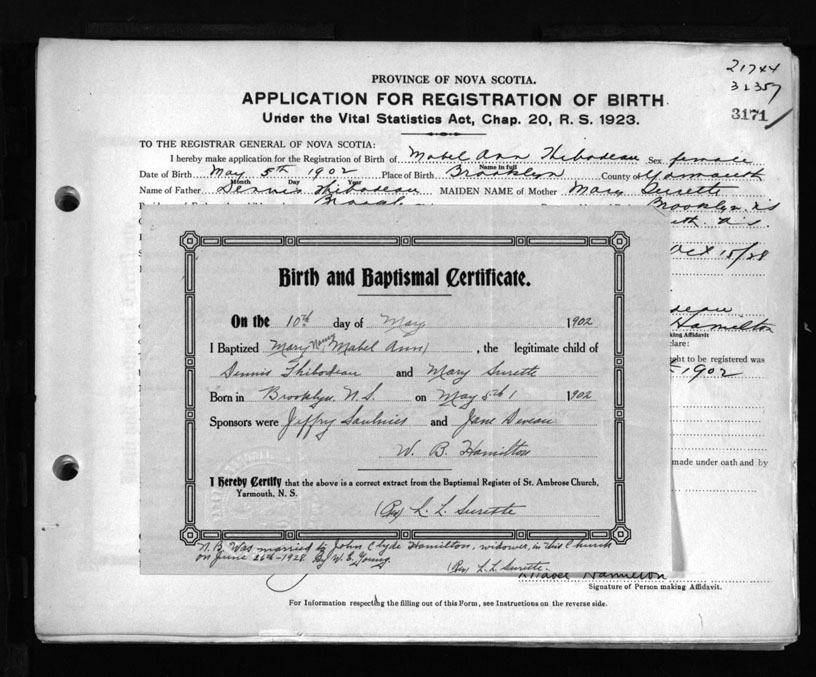 21744
31357
3171
PROVINCE OF NOVA SCOTIA.
APPLICATION FOR REGISTRATION OF BIRTH
Under the Vital Statistics Act, Chap. 20, R. S. 1923.
TO THE REGISTRAR GENERAL OF NOVA SCOTIA:
I hereby make application for the Registration of Birth of Mabel Ann Thibodeau Sex female
Name in full
Date of Birth May 5th 1902 Place of Birth Brooklyn County of Yarmouth
Month Day Year
Name of Father Dennis Thibodeau MAIDEN NAME of Mother Mary Surette
Brooklyn NS
N.S.
Oct 15/28
Hamilton
making Affidavit
clare:
ght to be registered was
1902
made under oath and by
Birth and Baptismal Certificate.
On the 10th day of May 1902
I Baptized Mary Mabel Ann , the legitimate child of
Dennis Thibodeau and Mary Surette
Born in Brooklyn, N.S. on May 5th 1902
Sponsors were Jeffry Saulnies and Jane Deveau
W. B. Hamilton
I Hereby Certify that the above is a correct extract from the Baptismal Register of St. Ambrose Church,
Yarmouth, N. S.
(Rev) L. L. Surette
N.B. Was married to John Clyde Hamilton, widower, in this Church
on June 26th-1928. By W. E. Young.
(Rev) L. L. Surette.
Mabel Hamilton
Signature of Person making Affidavit.
For Information respecting the filling out of this Form, see Instructions on the reverse side.